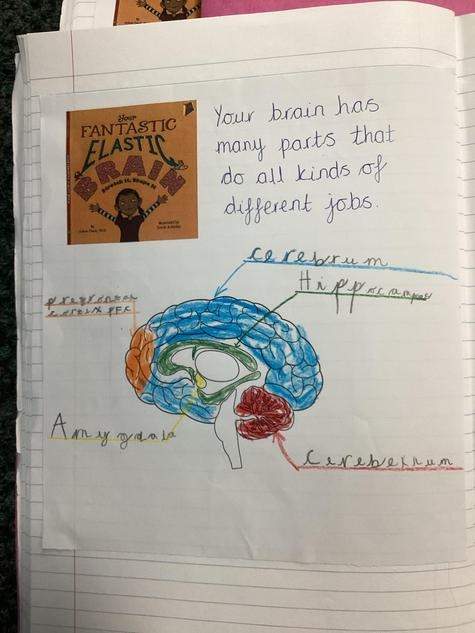 Your
FANTASTIC
ELASTIC
BRAIN
Stretch It, Shape It
Your brain has
many parts that
do all kinds of
different jobs.
cerebrum
Hippocampus
prefrontal
cortex PFC
Amygdala
Cerebellum